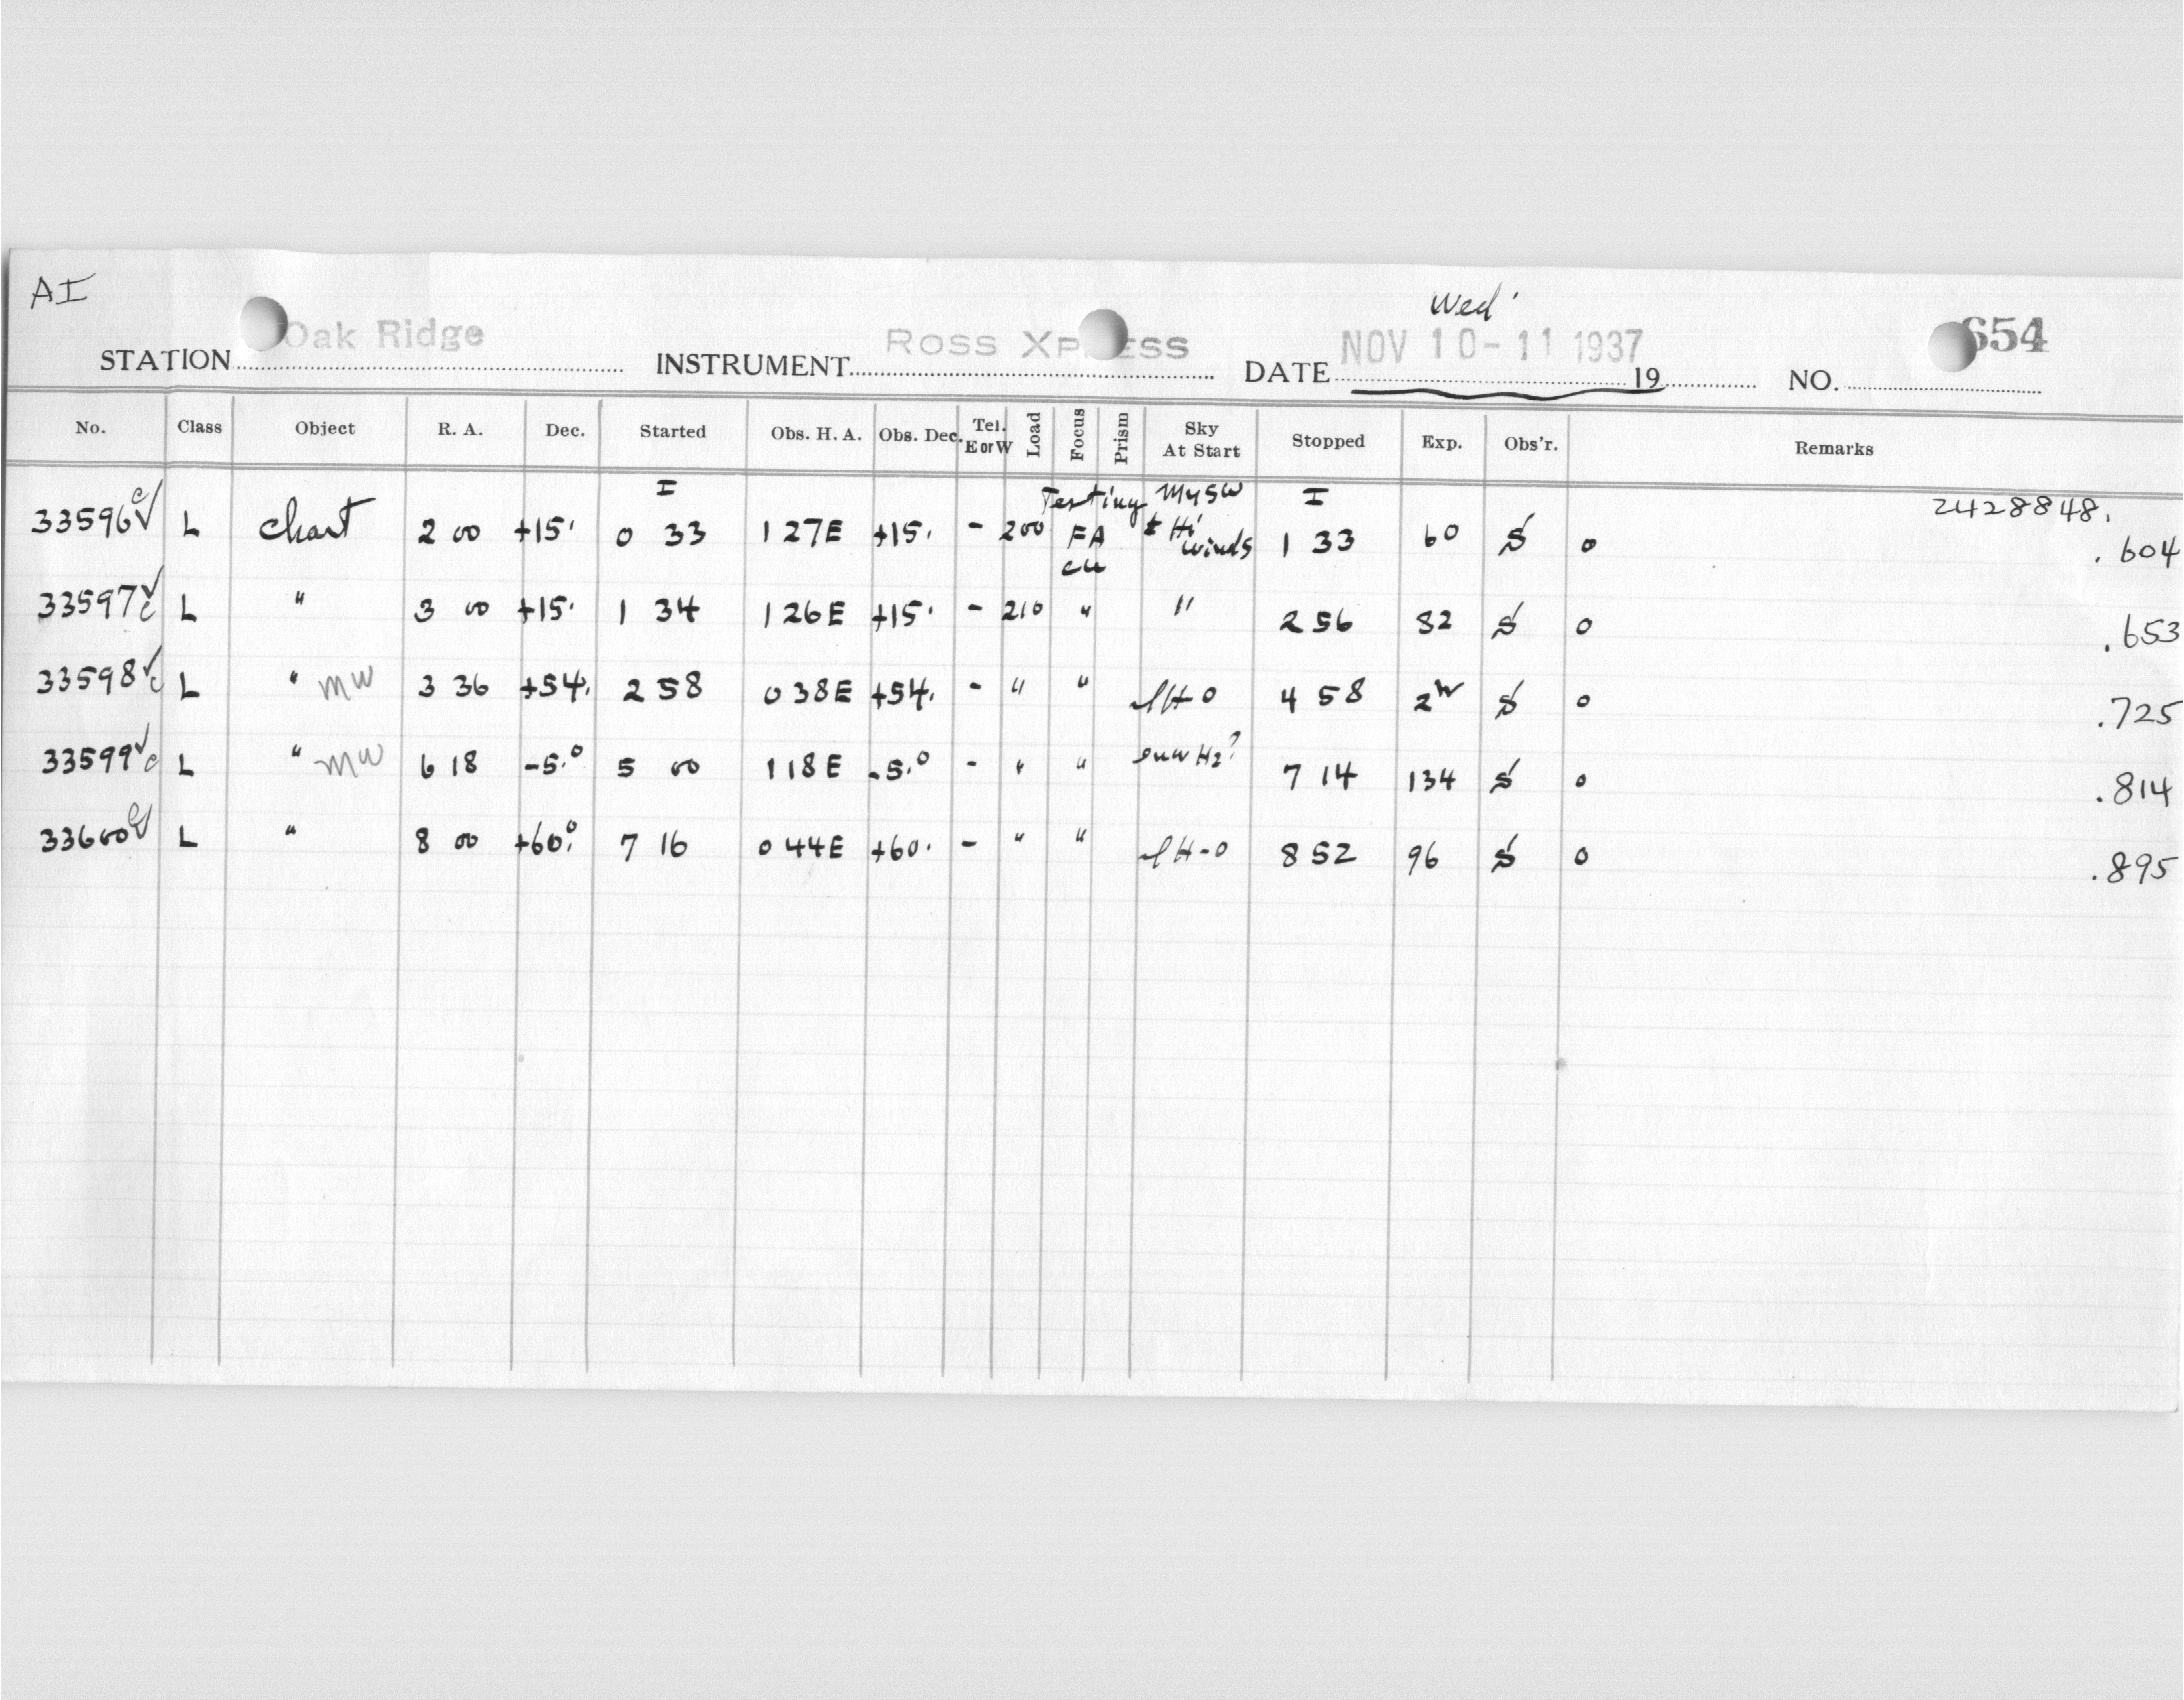 AI
Wed'
STATION Oak Ridge INSTRUMENT ROSS XP ESS DATE NOV 10-11 1937 19 NO. 654
No. Class Object R. A. Dec. Started Obs. H. A. Obs. Dec. Tel. E or W Load Focus Prism Sky At Start Stopped Exp. Obs'r. Remarks
I Testing I 2428848.
33596 c✓ L Chart 2 00 +15. 0 33 1 27E +15. - 200 FA Hi winds 1 33 60 S 0 .604
33597 ✓c L " 3 00 +15. 1 34 1 26E +15. - 210 " " 2 56 82 S 0 .653
33598 ✓c L " MW 3 36 +54. 2 58 0 38E +54. - " " 4 58 2 S 0 .725
33599 ✓c L " MW 6 18 -5.° 5 00 1 18E -5.° - " " 7 14 134 S 0 .814
33600 c✓ L " 8 00 +60.° 7 16 0 44E +60. - " " 8 52 96 S 0 .895